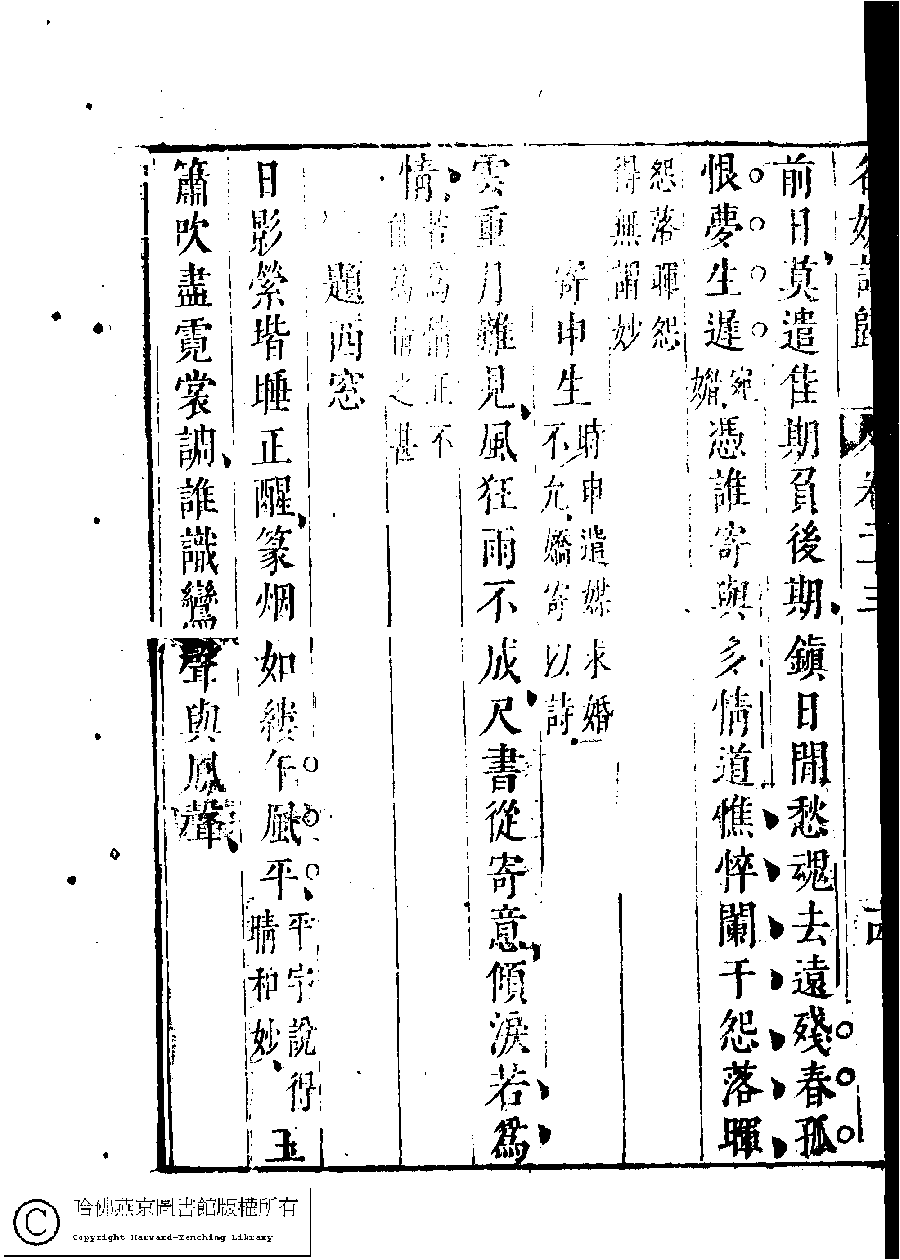 前日莫遣佳期負後期鎮日閒愁魂去遠殘春孤
恨夢生遲
宛
媚
憑誰寄與多情道憔悴闌干怨落暉
怨落暉怨
得無謂妙
寄申生
時申遣媒求婚
不允嬌寄以詩
雲重月難見風狂雨不成尺書從寄意傾淚若爲
情
若爲情正不
能爲情之甚
題西窓
日影縈堦睡正醒篆烟如縷午風平
平字說得
晴和妙
玉
簫吹盡霓裳調誰識鸞聲與鳳聲
哈佛燕京圖書館版權所有
Copyright Harvard-Yenching Library